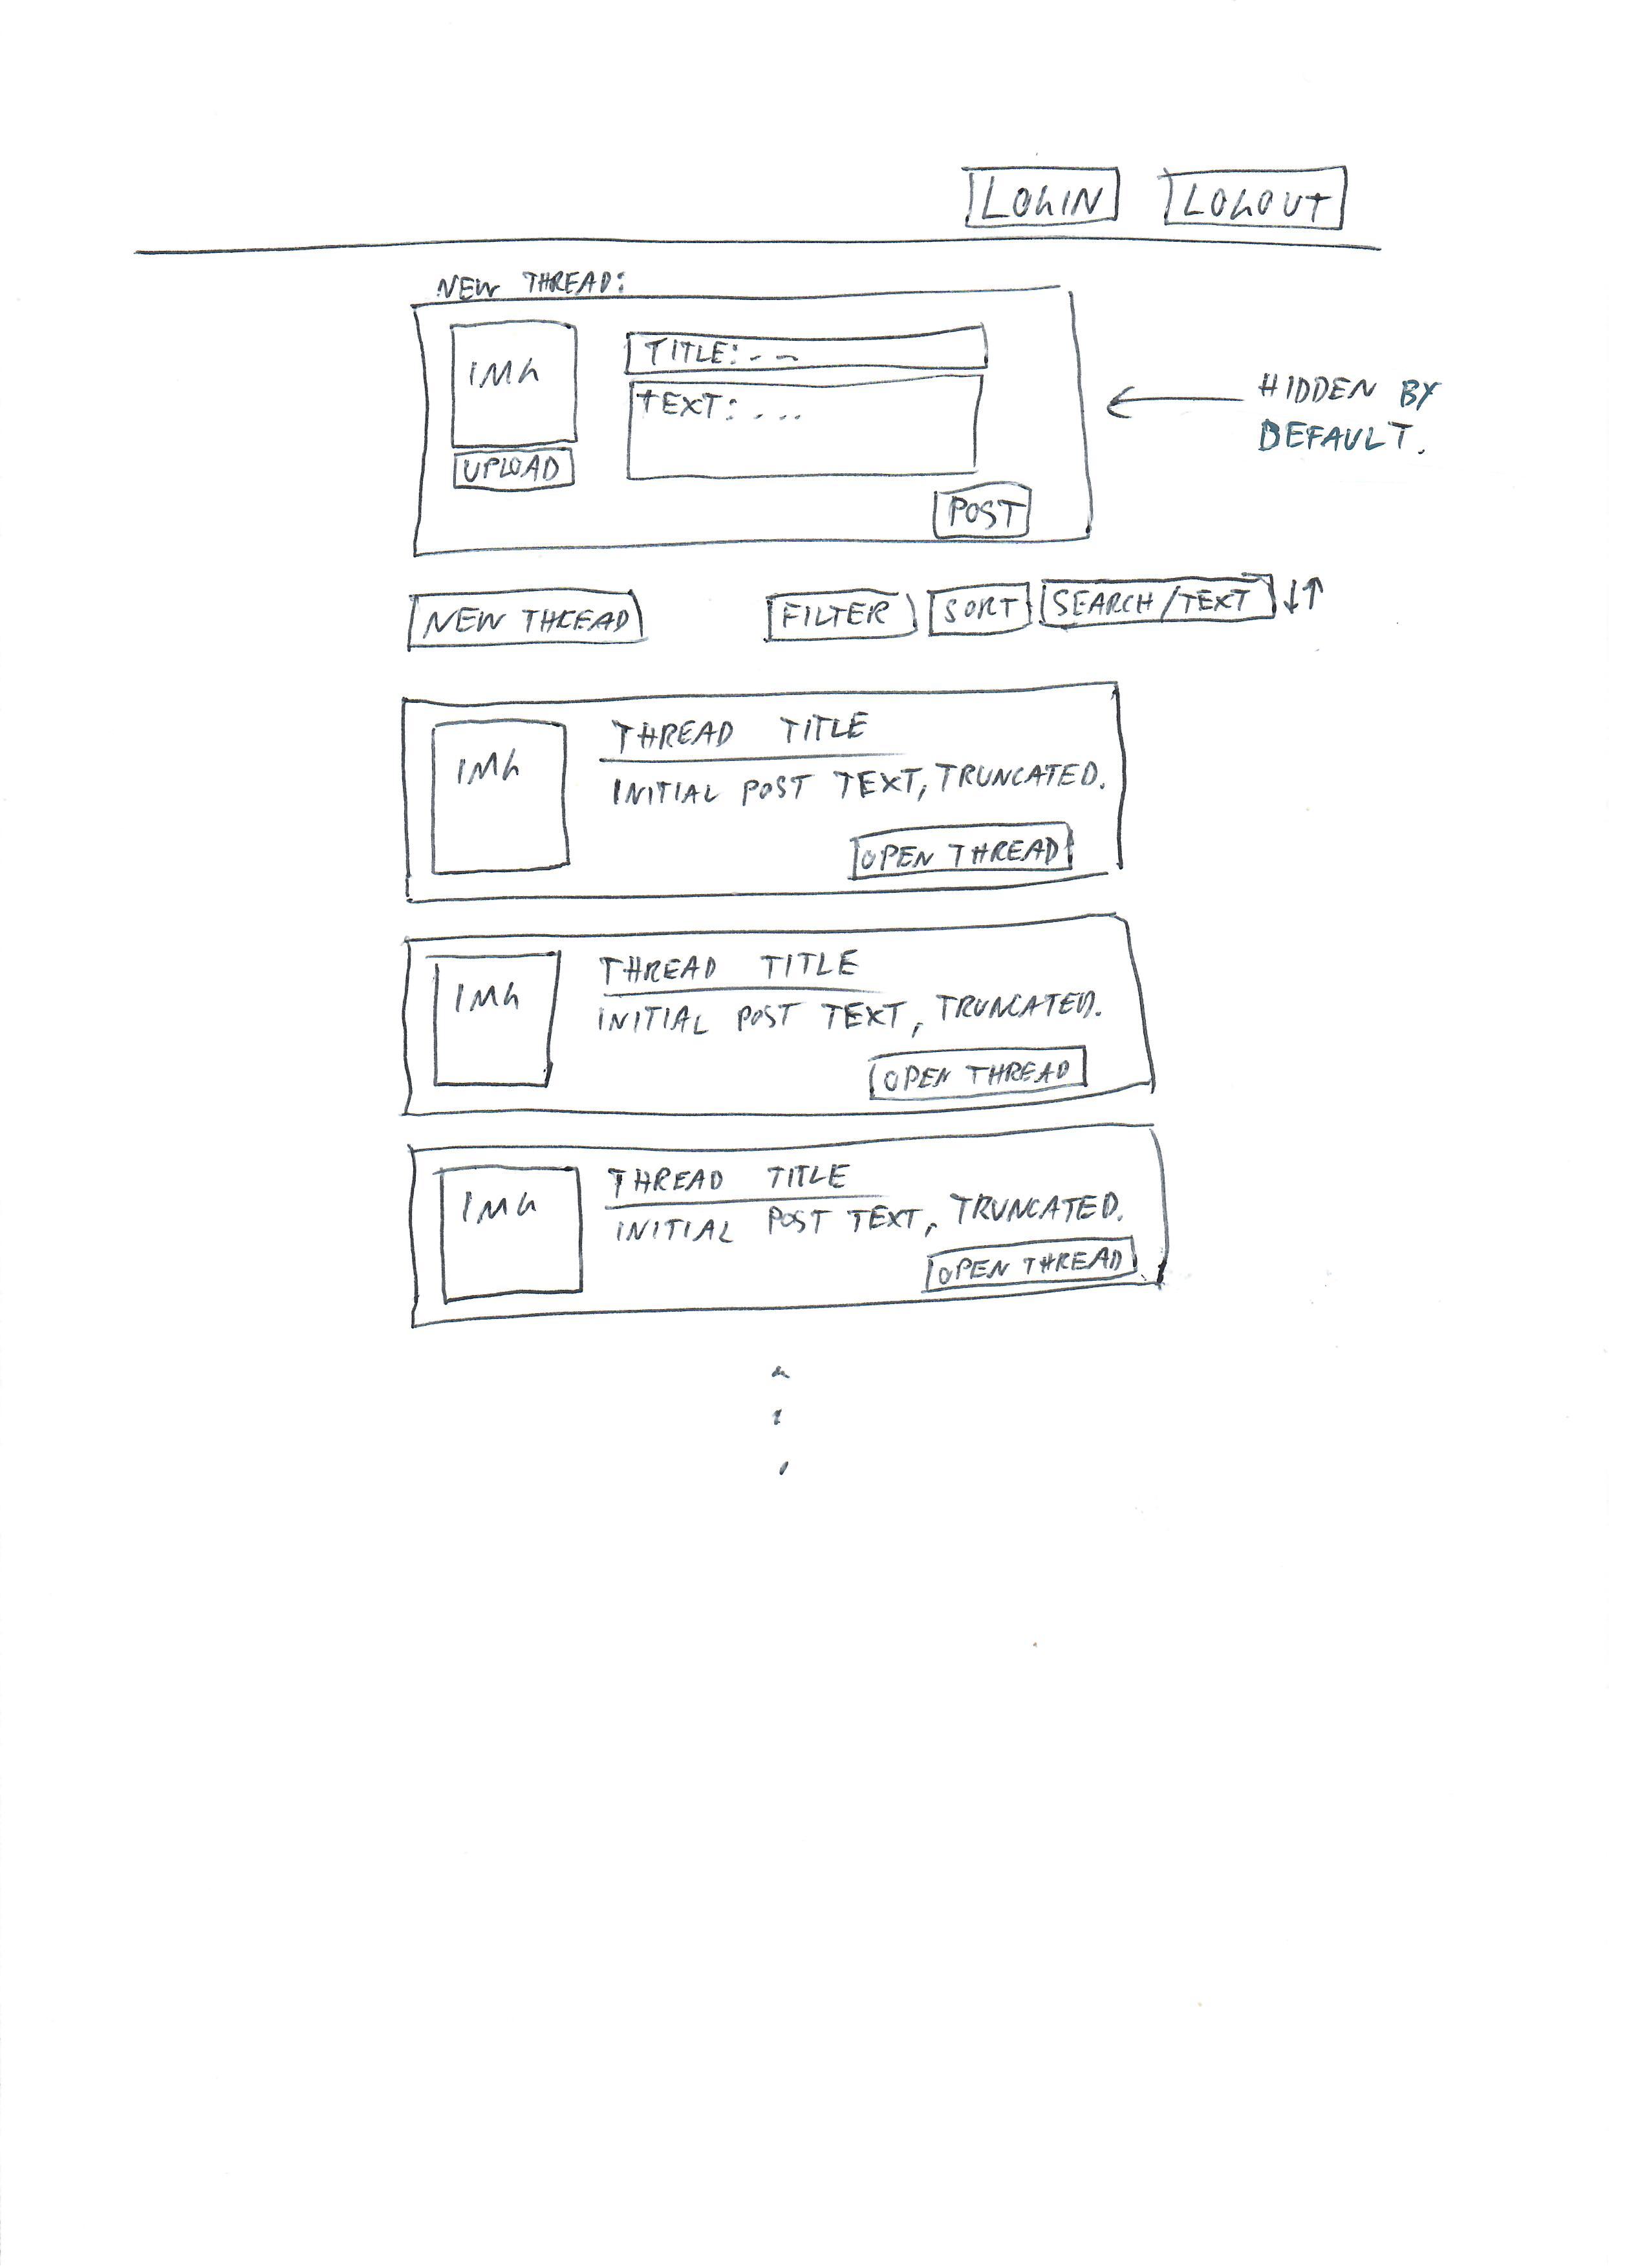 LOGIN LOGOUT
NEW THREAD:
IMG
TITLE: --
TEXT: ...
UPLOAD
POST
HIDDEN BY
DEFAULT.
NEW THREAD FILTER SORT SEARCH/TEXT ↓↑
IMG
THREAD TITLE
INITIAL POST TEXT, TRUNCATED.
OPEN THREAD
IMG
THREAD TITLE
INITIAL POST TEXT, TRUNCATED.
OPEN THREAD
IMG
THREAD TITLE
INITIAL POST TEXT, TRUNCATED.
OPEN THREAD